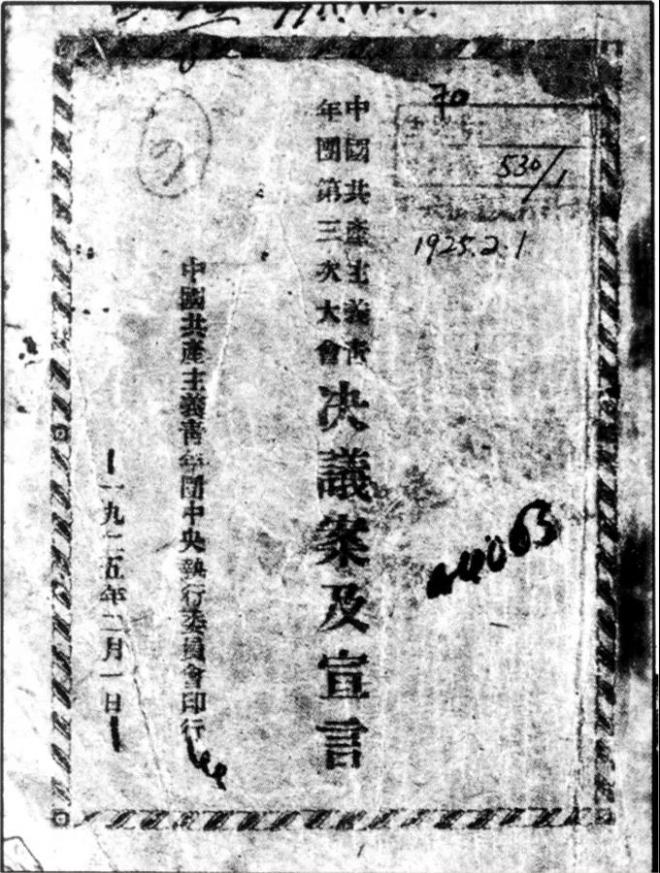 70
530/1
1925.2.1
中國共產主義青
年團第三次大會
决議案及宣言
a4063
中國共產主義青年團中央執行委員會印行
一九二五年二月一日